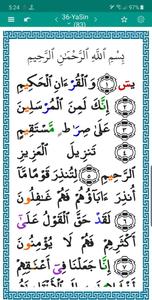 5:24
36-YaSin
(83)
بِسْمِ ٱللَّهِ ٱلرَّحْمَٰنِ ٱلرَّحِيمِ
يسٓ ١ وَٱلْقُرْءَانِ ٱلْحَكِيمِ
٢ إِنَّكَ لَمِنَ ٱلْمُرْسَلِينَ
٣ عَلَىٰ صِرَٰطٍ مُّسْتَقِيمٍ
٤ تَنزِيلَ ٱلْعَزِيزِ
ٱلرَّحِيمِ ٥ لِتُنذِرَ قَوْمًا مَّآ
أُنذِرَ ءَابَآؤُهُمْ فَهُمْ غَٰفِلُونَ
٦ لَقَدْ حَقَّ ٱلْقَوْلُ عَلَىٰٓ
أَكْثَرِهِمْ فَهُمْ لَا يُؤْمِنُونَ
٧ إِنَّا جَعَلْنَا فِىٓ أَعْنَٰقِهِمْ